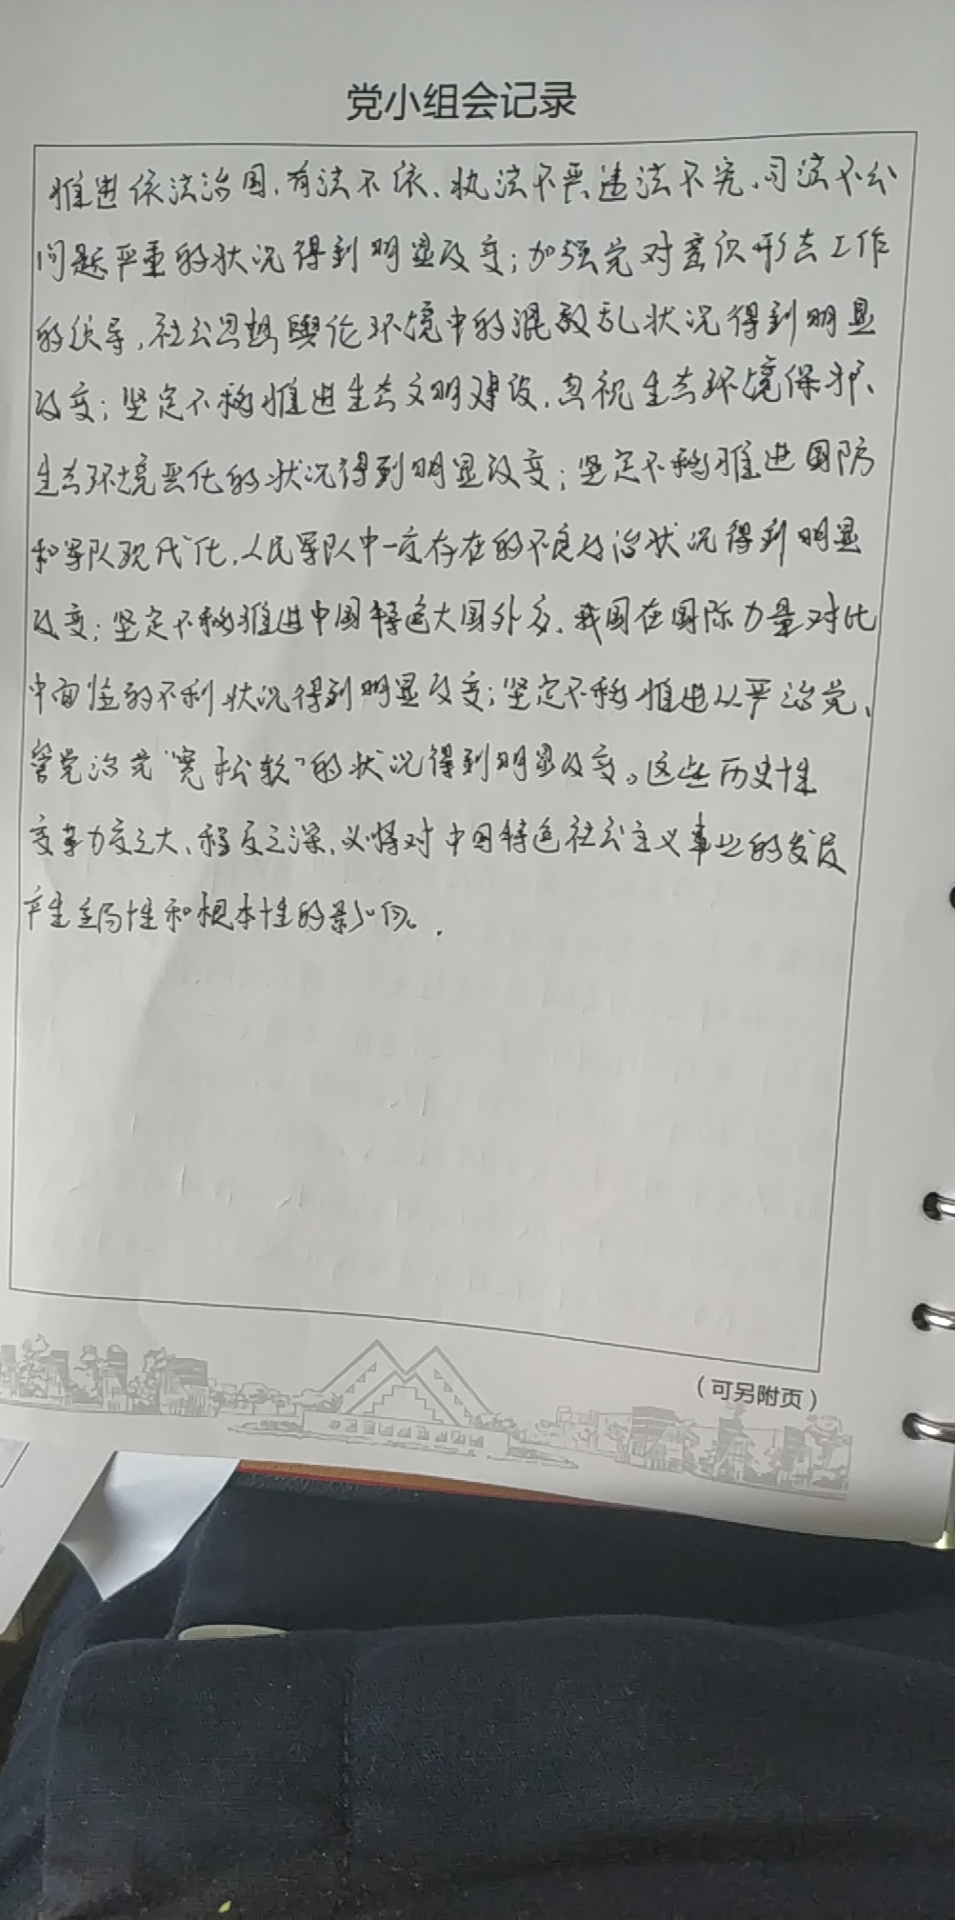 党小组会记录
推进依法治国,有法不依、执法不严违法不究、司法不公
问题严重的状况得到明显改变;加强党对意识形态工作
的领导,社会思想舆论环境中的混乱状况得到明显
改变;坚定不移推进生态文明建设,忽视生态环境保护、
生态环境恶化的状况得到明显改变;坚定不移推进国防
和军队现代化,人民军队中一度存在的不良政治状况得到明显
改变;坚定不移推进中国特色大国外交,我国在国际力量对比
中面临的不利状况得到明显改变;坚定不移推进从严治党、
管党治党“宽松软”的状况得到明显改变。这些历史性
变革力度之大、程度之深,必将对中国特色社会主义事业的发展
产生全局性和根本性的影响。
(可另附页)